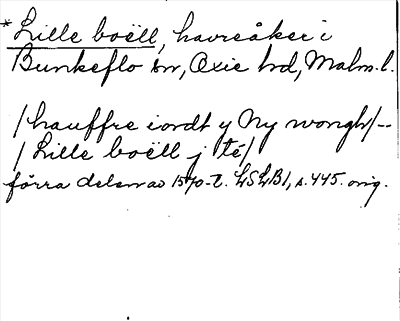 *Lille boëll, havreåker i
Bunkeflo sn, Oxie hd, Malm. l.
/hauffre iordt y Ny wongh/--
/Lille boëll j té/
förra delen av 1570-t. LSLB1, s. 445. orig.